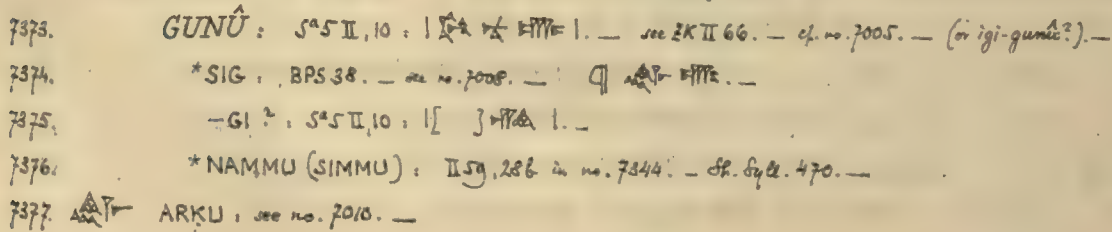 7373. GUNÛ : Sᵃ 5 II, 10 : | | . — see ZK II 66. — cf. no. 7005. — (or igi-gunû?). —
7374. *SIG : BPS 38. — see no. 7008. — ¶ . —
7375. -GI ? : Sᵃ 5 II, 10 : | [ ] | . —
7376. *NAMMU (SIMMU) : II 59, 28b in no. 7344. — Syll. 470. —
7377. ARKU : see no. 7010. —